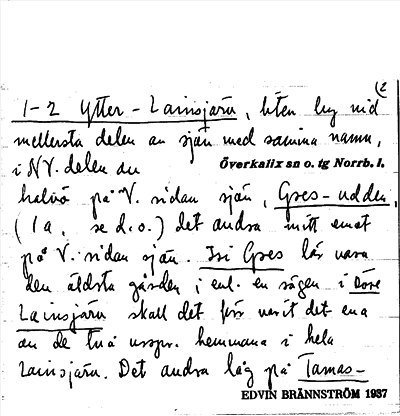 (2
1-2 Ytter-Lainsjärv, liten by vid
mellersta delen av sjön med samma namn,
i NV. delen av Överkalix sn o. tg Norrb. l.
halvö på V. sidan sjön, Gres-udden,
(1a, se d.o.) det andra mitt emot
på V. sidan sjön. Isi Gres lär vara
den äldsta gården i enl. en sägen i Övre
Lainsjärv skall det förr varit det ena
av de två urspr. hemmana i hela
Lainsjärv. Det andra låg på Tamas-
EDVIN BRÄNNSTRÖM 1937